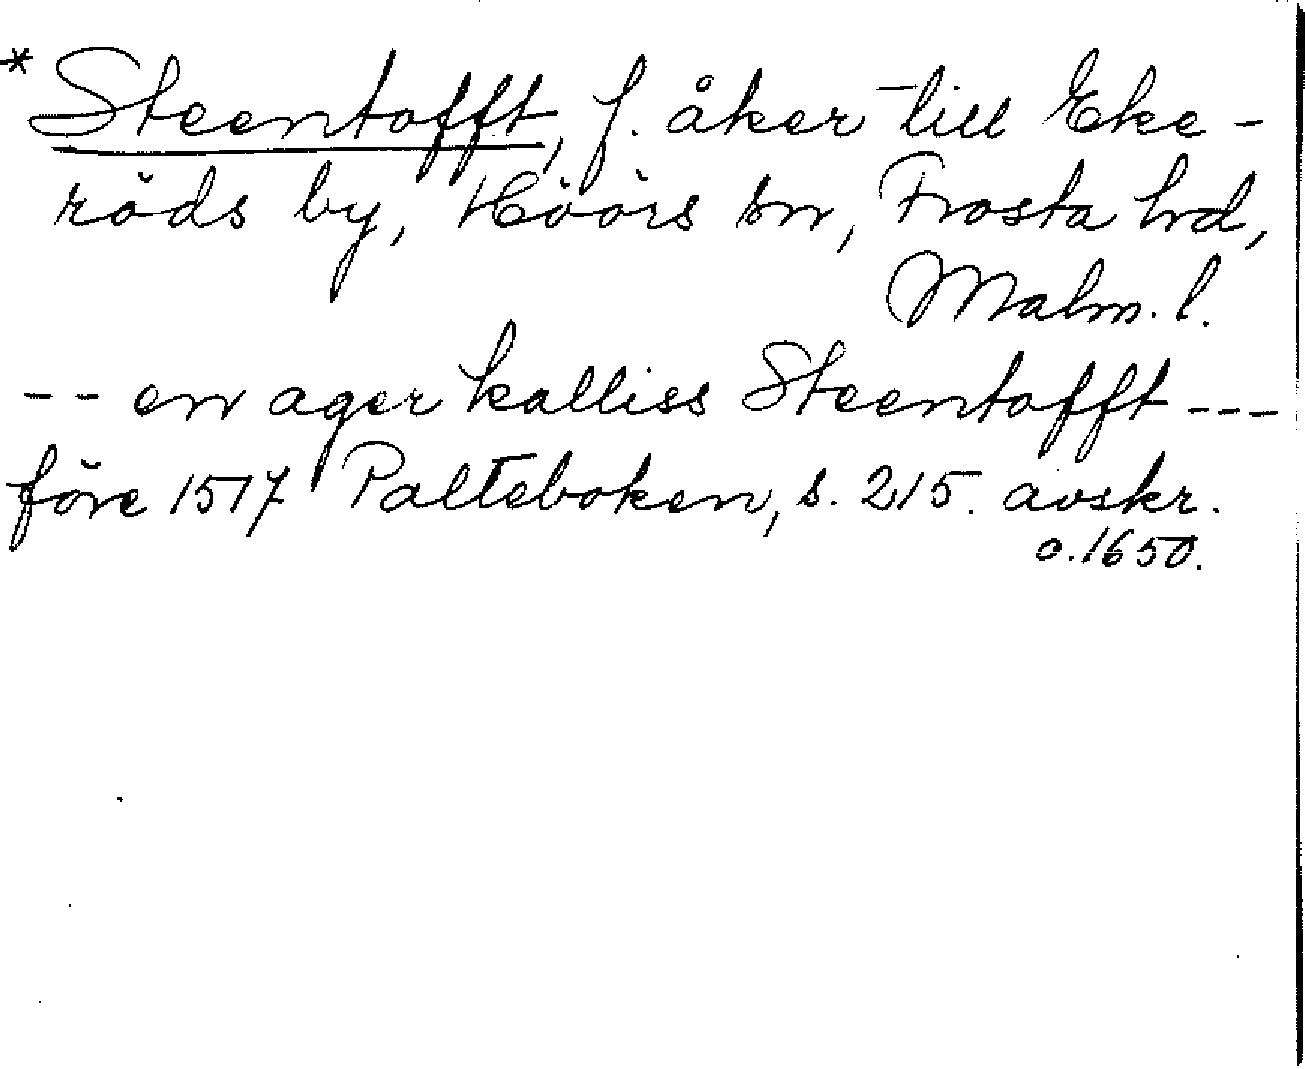 * Steentofft, f. åker till Eke-
röds by, Höörs sn, Frosta hd,
Malm. l.
-- en ager kalliss Steentofft ---
före 1517 Palteboken, s. 215. avskr.
o. 1650.